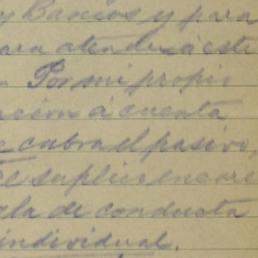 y Bancos y para
para atender a este
Por mi propio
ación a cuenta
e cubra el pasivo,
el suplico encare
gla de conducta
individual.